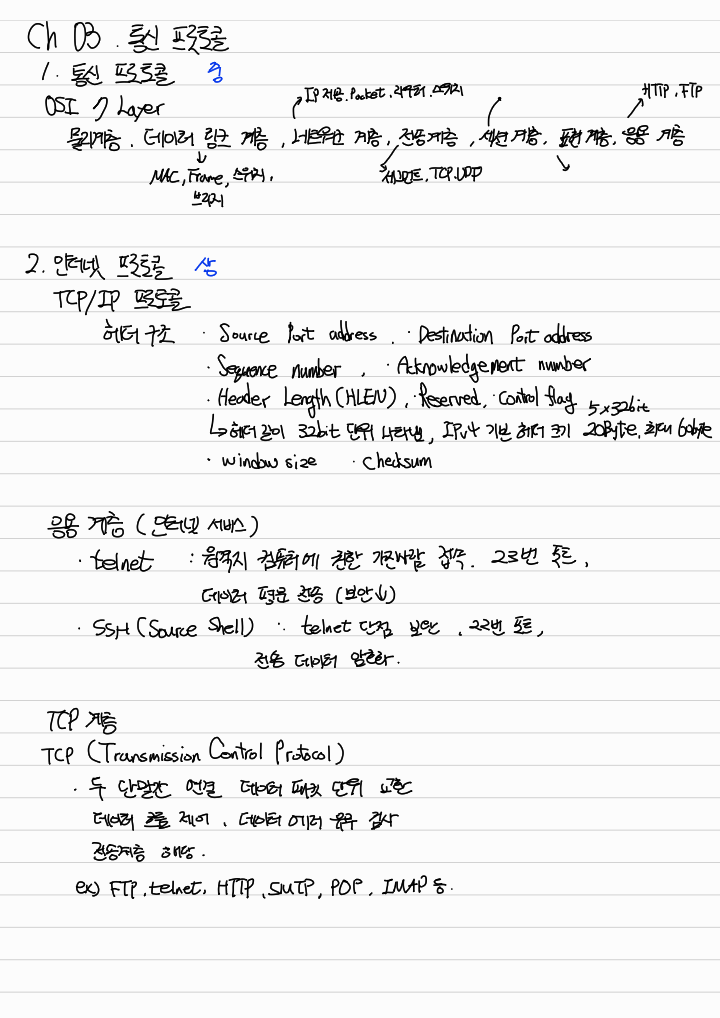 Ch 03. 통신 프로토콜
1. 통신 프로토콜 중
IP 적용, Packet, 라우터, 스위치
HTTP, FTP
OSI 7 Layer
물리계층, 데이터 링크 계층, 네트워크 계층, 전송계층, 세션 계층, 표현 계층, 응용 계층
MAC, Frame, 스위치,
브리지
세그먼트, TCP, UDP
2. 인터넷 프로토콜 상
TCP/IP 프로토콜
헤더 구조 · Source Port address, · Destination Port address
· Sequence number, · Acknowledgement number
· Header Length (HLEN), · Reserved, · Control flag
5×32bit
↳ 헤더 길이 32bit 단위 나타냄, IPv4 기본 헤더 크기 20Byte, 최대 60byte
· window size · Checksum
응용 계층 (인터넷 서비스)
· telnet : 원격지 컴퓨터에 권한 가진사람 접속, 23번 포트,
데이터 평문 전송 (보안↓)
· SSH (Source Shell) : telnet 단점 보안, 22번 포트,
전송 데이터 암호화.
TCP 계층
TCP (Transmission Control Protocol)
· 두 단말간 연결 데이터 패킷 단위 교환
데이터 흐름 제어, 데이터 에러 유무 검사
전송계층 해당.
ex) FTP, telnet, HTTP, SMTP, POP, IMAP 등.